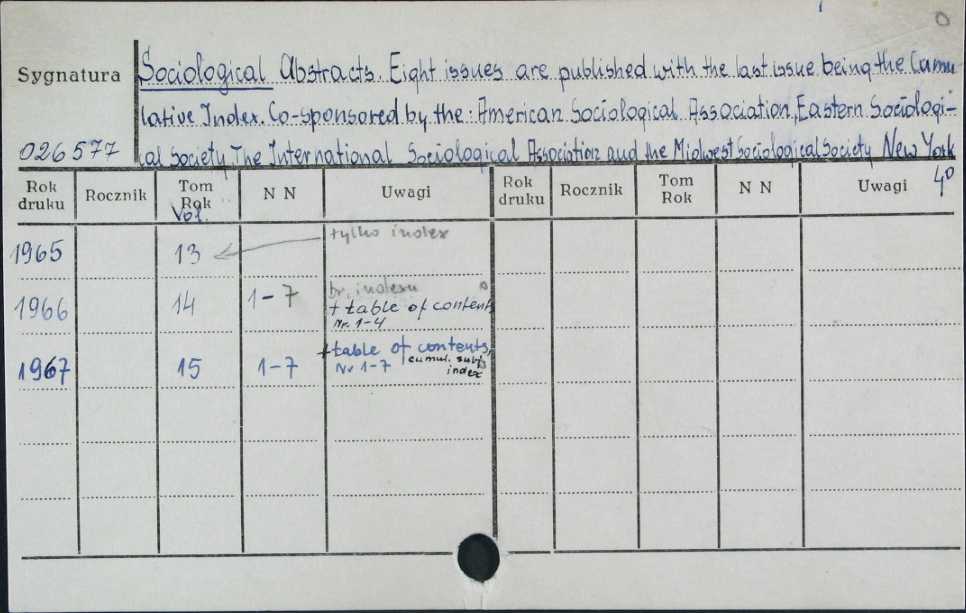 0
Sygnatura
Sociological Abstracts. Eight issues are published with the last issue being the Cumu
lative Index. Co-sponsored by the: American Sociological Association, Eastern Sociologi-
026577 cal Society, The International Sociological Association and the Midwest Sociological Society New York
4⁰
Rok druku Rocznik Tom Rok Vol. N N Uwagi Rok druku Rocznik Tom Rok N N Uwagi
1965 13 tylko index
1966 14 1-7 br. indexu
+ table of contents
Nr. 1-4
1967 15 1-7 + table of contents,
Nr 1-7 cumul. subj.
index